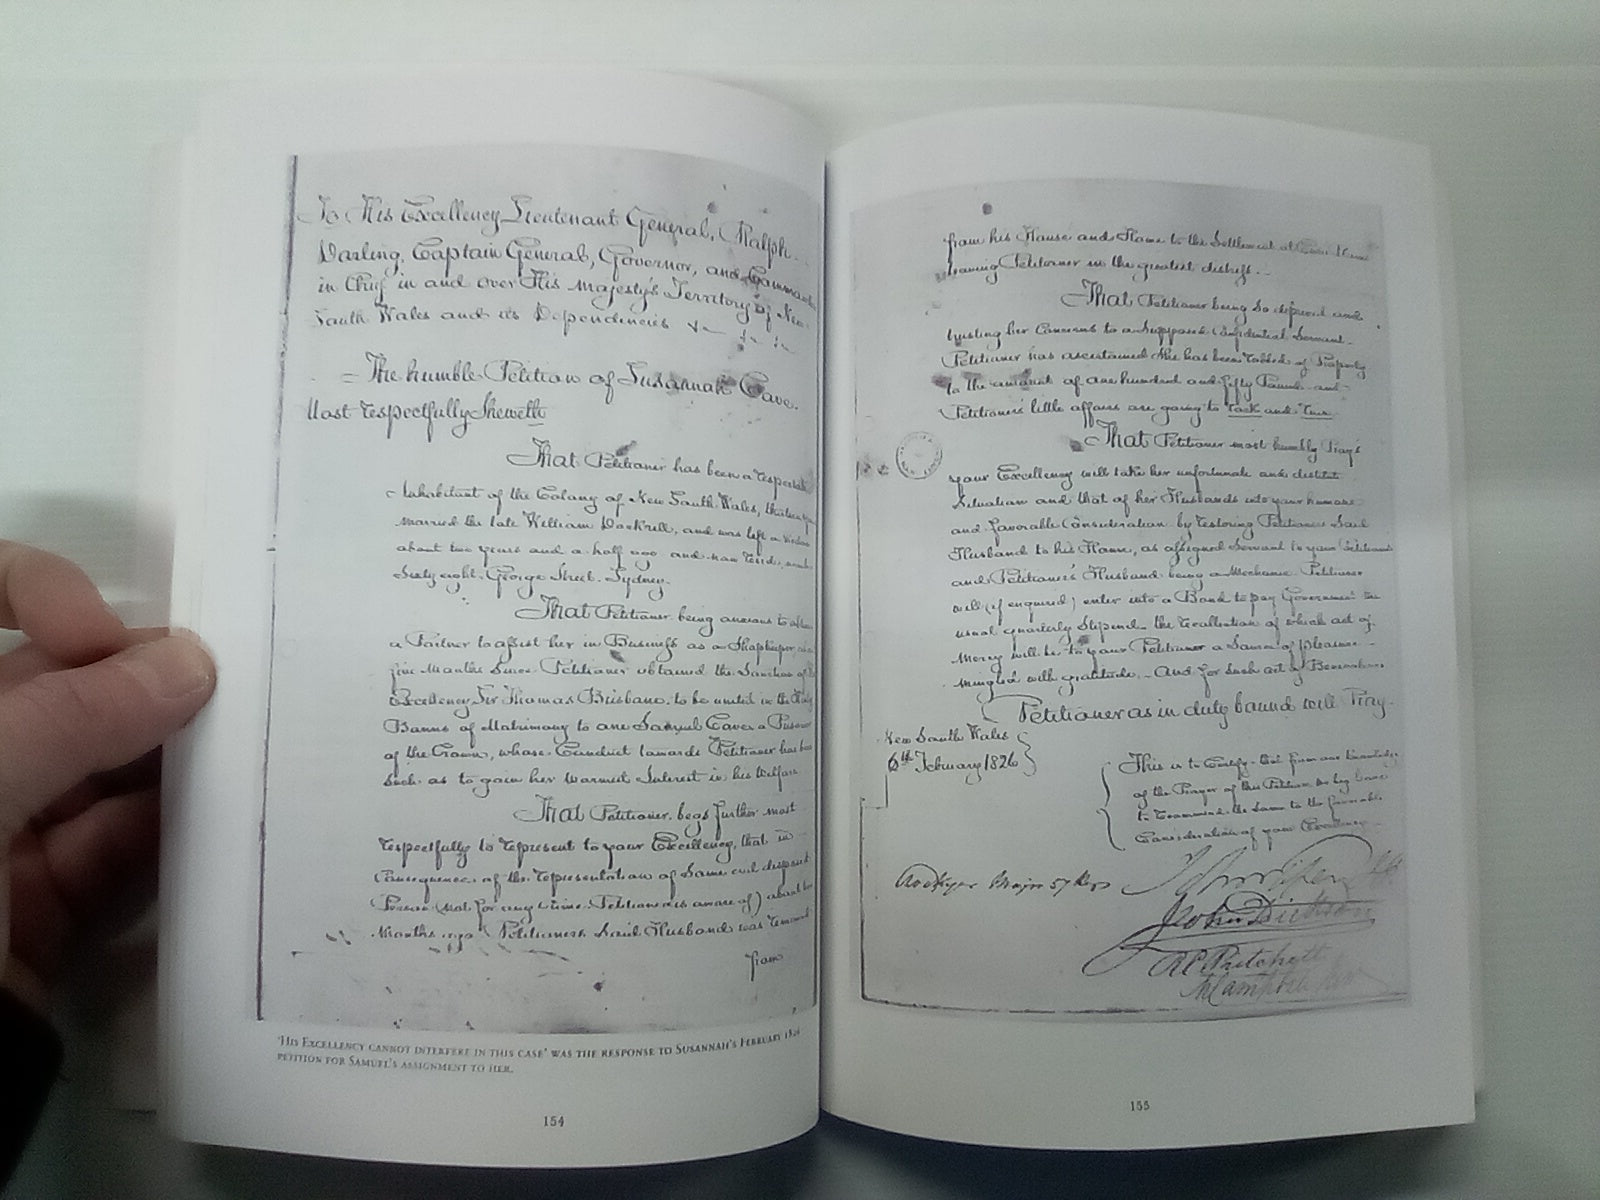 To His Excellency Lieutenant General, Ralph
Darling, Captain General, Governor, and
in Chief in and over His Majesty's Territory of New
South Wales and its Dependencies &c
The humble Petition of Susannah Cave.
Most respectfully Sheweth
That Petitioner has been a respectable
Inhabitant of the Colony of New South Wales,
married the late William Dockrill, and was left a Widow
about two years and a half ago and now reside,
Sixty eight. George Street. Sydney.
That Petitioner being anxious to
a Partner to assist her in Business as a Shopkeeper,
five Months Since Petitioner obtained the Sanction of
Excellency Sir Thomas Brisbane. to be united in the Holy
Banns of Matrimony to one Samuel Cave. a Prisoner
of the Crown, whose Conduct towards Petitioner has been
Such as to gain her warmest Interest in his Welfare
That Petitioner begs further most
respectfully to represent to your Excellency, that in
Consequence of the representation of Some evil disposed
Person (not for any crime Petitioner is aware of) about
Months ago Petitioners Said Husband was removed
from
'His Excellency cannot interfere in this case' was the response to Susannah's February 1826
petition for Samuel's assignment to her.
154
from his House and Home to the Settlement at
leaving Petitioner in the greatest distress.
That Petitioner being So deprived and
trusting her Concerns to a Supposed Confidential Servant
Petitioner has ascertained She has been robbed of Property
to the amount of one hundred and fifty Pounds and
Petitioners' little affairs are going to rack and ruin
That Petitioner most humbly Prays
your Excellency will take her unfortunate and destitute
Situation and that of her Husbands into your humane
and favorable Consideration by restoring Petitioners Said
Husband to his Home, as assigned Servant to your Petitioner
and Petitioner's Husband being a Mechanic Petitioner
will (if required) enter into a Bond to pay Government the
usual quarterly Stipend. the recollection of which act of
Mercy will be to your Petitioner a Source of pleasure
mingled with gratitude. And for Such act of Benevolence
Petitioner as in duty bound will Pray.
New South Wales
6th February 1826
This is to Certify that from our knowledge
of the Prayer of this Petition we beg leave
to recommend the Same to the favorable
Consideration of your Excellency
Major 57 Regt
John Dickson
R C Pritchett
155